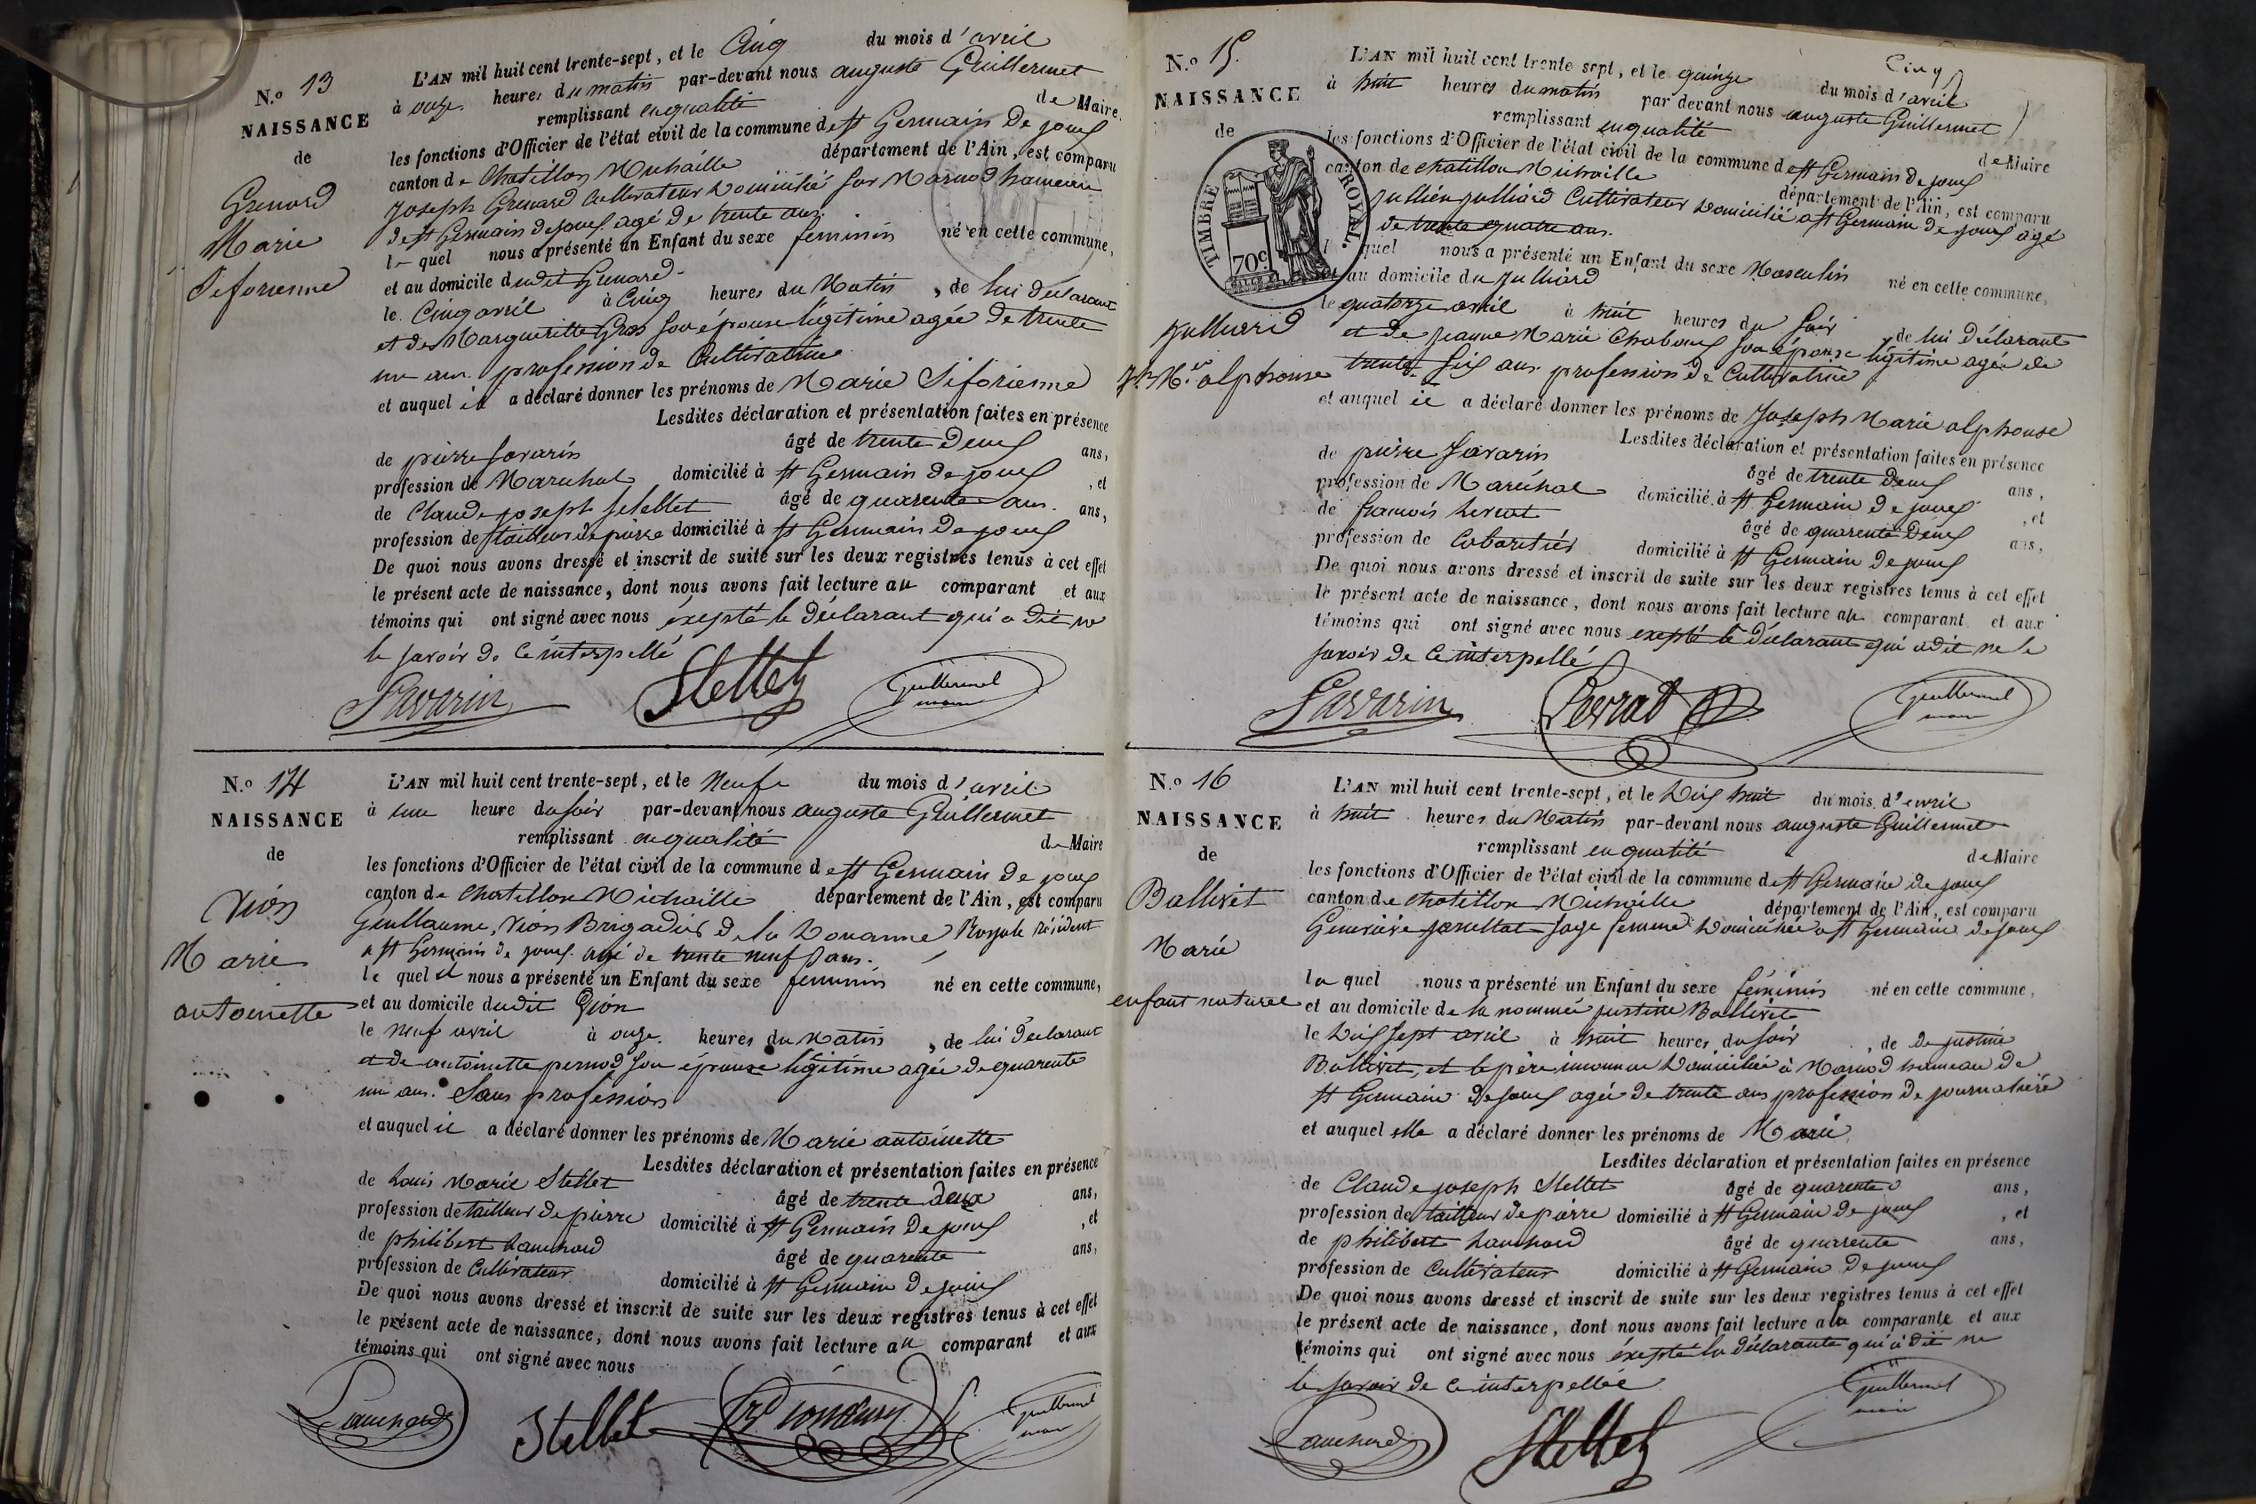 N.o 13
NAISSANCE
de
Grenard
Marie
Siforienne
L'AN mil huit cent trente-sept, et le Cinq du mois d'avril
à onze heures du matin par-devant nous auguste Guillermet
remplissant en qualité de Maire
les fonctions d'Officier de l'état civil de la commune de St Germain de joux
canton de Chatillon Michaille département de l'Ain, est comparu
Joseph Grenard Cultivateur Domicilié sur Marnod hameau
de St Germain de joux agé de trente ans
le quel nous a présenté un Enfant du sexe feminin né en cette commune,
et au domicile dudit Grenard
le Cinq avril à Cinq heures du Matin, de lui déclarant
et de Margueritte Gros son épouse légitime agée de trente
un ans profession de Cultivatrice
et auquel il a déclaré donner les prénoms de Marie Siforienne
Lesdites déclaration et présentation faites en présence
de pierre savarin âgé de trente deux ans,
profession de Marechal domicilié à St Germain de joux, et
de Claude joseph stellet âgé de quarente ans. ans,
profession de tailleur de pierre domicilié à St Germain de joux
De quoi nous avons dressé et inscrit de suite sur les deux registres tenus à cet effet
le présent acte de naissance, dont nous avons fait lecture au comparant et aux
témoins qui ont signé avec nous éxepté le déclarant qui a dit ne
le savoir de ce interpellé
Savarin Stellet Guillermet maire
N.o 14
NAISSANCE
de
Vion
Marie
antoinette
L'AN mil huit cent trente-sept, et le Neuf du mois d'avril
à une heure du soir par-devant nous auguste Guillermet
remplissant en qualité de Maire
les fonctions d'Officier de l'état civil de la commune de St Germain de joux
canton de Chatillon Michaille département de l'Ain, est comparu
Guillaume Vion Brigadier de la Douanne Royale résident
a St Germain de joux agé de trente neuf ans.
le quel nous a présenté un Enfant du sexe feminin né en cette commune,
et au domicile dudit Vion
le neuf avril à onze heures du Matin, de lui déclarant
et de antoinette pernod son épouse légitime agée de quarente
un ans. Sans profession
et auquel il a déclaré donner les prénoms de Marie antoinette
Lesdites déclaration et présentation faites en présence
de Louis Marie Stellet âgé de trente deux ans,
profession de tailleur de pierre domicilié à St Germain de joux, et
de philibert Lanchard âgé de quarente ans,
profession de Cultivateur domicilié à St Germain de joux
De quoi nous avons dressé et inscrit de suite sur les deux registres tenus à cet effet
le présent acte de naissance, dont nous avons fait lecture au comparant et aux
témoins qui ont signé avec nous
Stellet Guillermet maire
Cinq
N.o 15.
NAISSANCE
de
TIMBRE ROYAL.
70c
Julliard
Jh Mie alphonse
L'AN mil huit cent trente sept, et le quinze du mois d'avril
à huit heures du matin par devant nous auguste Guillermet
remplissant en qualité de Maire
les fonctions d'Officier de l'état civil de la commune de St Germain de joux
canton de chatillon Michaille département de l'Ain, est comparu
Jullien julliard Cultivateur Domicilié a St Germain de joux agé
de trente quatre ans.
quel nous a présenté un Enfant du sexe Masculin né en cette commune,
au domicile du Julliard
le quatorze avril à huit heures du soir, de lui déclarant
et de jeanne Marie Chaboux son épouse légitime agée de
trente six ans profession de Cultivatrice
et auquel il a déclaré donner les prénoms de Joseph Marie alphonse
Lesdites déclaration et présentation faites en présence
de pierre Savarin âgé de trente deux ans,
profession de Maréchal domicilié à St Germain de joux, et
de francois perrat âgé de quarente deux ans,
profession de Cabaretier domicilié à St Germain de joux
De quoi nous avons dressé et inscrit de suite sur les deux registres tenus à cet effet
le présent acte de naissance, dont nous avons fait lecture au comparant et aux
témoins qui ont signé avec nous exepté le déclarant qui a dit ne le
savoir de ce interpellé
Savarin Perrat Guillermet maire
N.o 16
NAISSANCE
de
Ballivet
Marie
enfant naturel
L'AN mil huit cent trente-sept, et le Dix huit du mois d'avril
à huit heures du Matin par-devant nous auguste Guillermet
remplissant en qualité de Maire
les fonctions d'Officier de l'état civil de la commune de St Germain de joux
canton de chatillon Michaille département de l'Ain, est comparu
Genevieve sage femme Domiciliée a St Germain de joux
la quel nous a présenté un Enfant du sexe féminin né en cette commune,
et au domicile de la nommée justine Ballivet
le Dix sept avril à huit heures du soir, de de justine
Ballivet, et le père inconnu Domiciliée à Marnod hameau de
St Germain de joux agée de trente ans profession de journalière
et auquel elle a déclaré donner les prénoms de Marie
Lesdites déclaration et présentation faites en présence
de Claude joseph Stellet âgé de quarente ans,
profession de tailleur de pierre domicilié à St Germain de joux, et
de philibert Lanchard âgé de quarente ans,
profession de Cultivateur domicilié à St Germain de joux
De quoi nous avons dressé et inscrit de suite sur les deux registres tenus à cet effet
le présent acte de naissance, dont nous avons fait lecture a la comparante et aux
témoins qui ont signé avec nous éxepté la déclarante qui a dit ne
le savoir de ce interpellée
Lanchard Stellet Guillermet maire